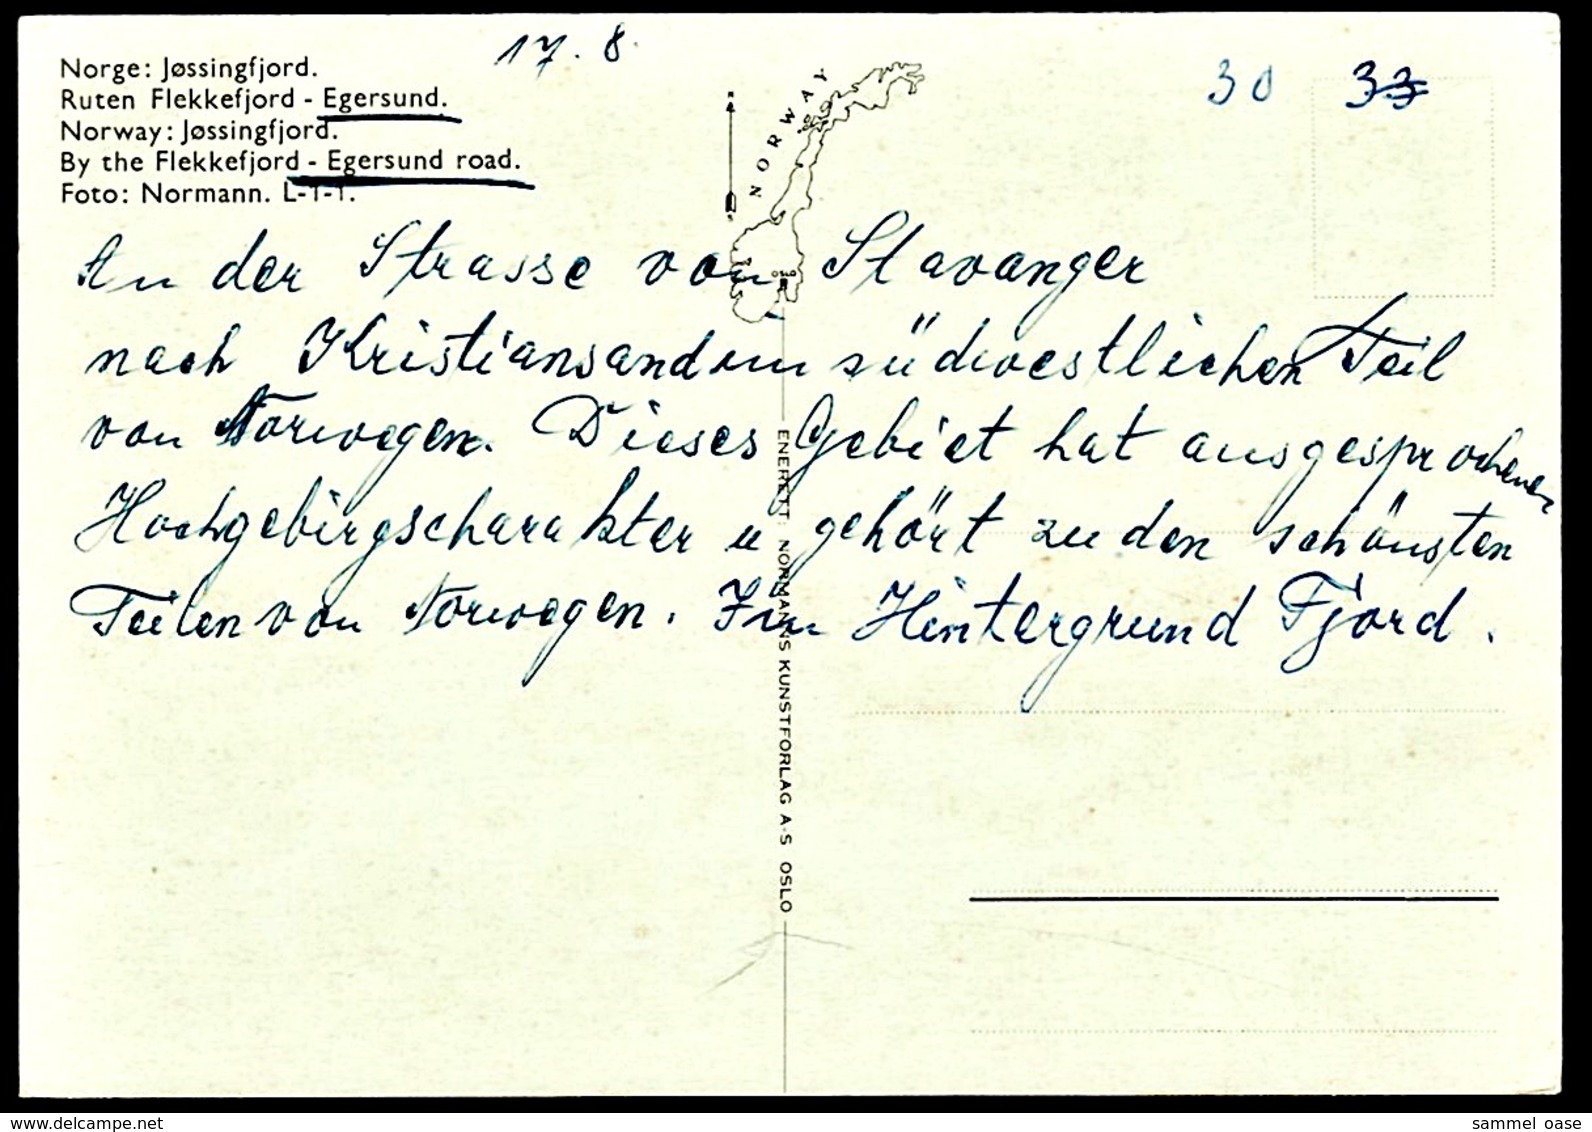 17. 8.
30 33
Norge: Jøssingfjord.
Ruten Flekkefjord - Egersund.
Norway: Jøssingfjord.
By the Flekkefjord - Egersund road.
Foto: Normann. L-1-1.
NORWAY
N
S
An der Strasse von Stavanger
nach Kristiansand im südwestlichen Teil
von Norwegen. Dieses Gebiet hat ausgesprochenen
Hochgebirgscharakter u gehört zu den schönsten
Teilen von Norwegen. Im Hintergrund Fjord.
ENERETT: NORMANNS KUNSTFORLAG A-S OSLO
www.delcampe.net
sammel_oase